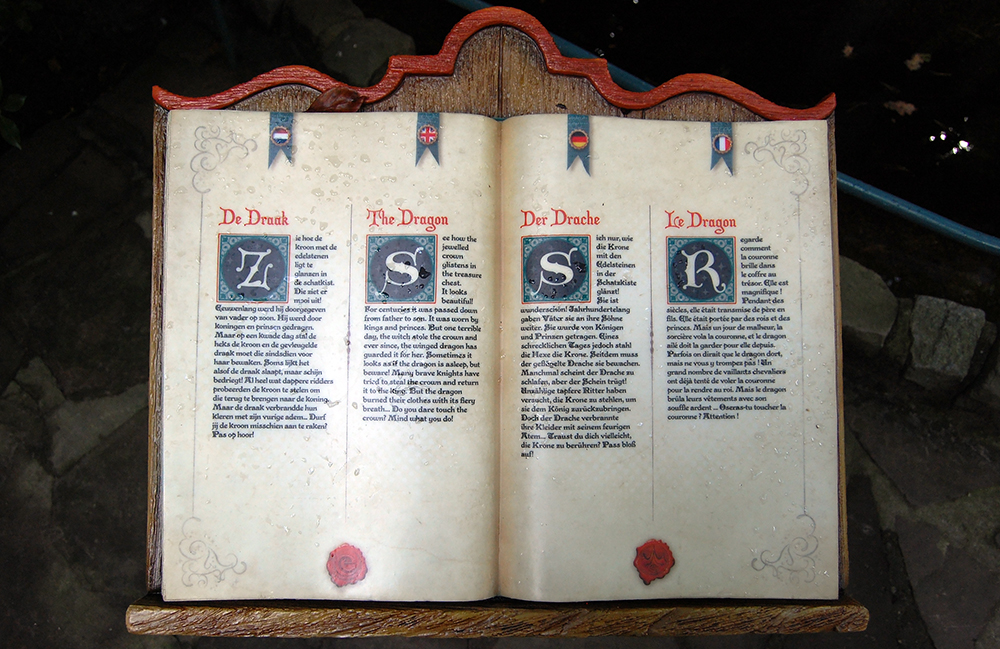 De Draak
Zie hoe de
kroon met de
edelstenen
ligt te
glanzen in
de schatkist.
Die ziet er
mooi uit!
Eeuwenlang werd hij doorgegeven
van vader op zoon. Hij werd door
koningen en prinsen gedragen.
Maar op een kwade dag stal de
heks de kroon en de gevleugelde
draak moet die sindsdien voor
haar bewaken. Soms lijkt het
alsof de draak slaapt, maar schijn
bedriegt! Al heel wat dappere ridders
probeerden de kroon te stelen om
die terug te brengen naar de koning.
Maar de draak verbrandde hun
kleren met zijn vurige adem... Durf
jij de kroon misschien aan te raken?
Pas op hoor!
The Dragon
See how the
jewelled
crown
glistens in
the treasure
chest.
It looks
beautiful!
For centuries it was passed down
from father to son. It was worn by
kings and princes. But one terrible
day, the witch stole the crown and
ever since, the winged dragon has
guarded it for her. Sometimes it
looks as if the dragon is asleep, but
beware! Many brave knights have
tried to steal the crown and return
it to the king. But the dragon
burned their clothes with its fiery
breath... Do you dare touch the
crown? Mind what you do!
Der Drache
Sieh nur, wie
die Krone
mit den
Edelsteinen
in der
Schatzkiste
glänzt!
Sie ist
wunderschön! Jahrhundertelang
gaben Väter sie an ihre Söhne
weiter. Sie wurde von Königen
und Prinzen getragen. Eines
schrecklichen Tages jedoch stahl
die Hexe die Krone. Seitdem muss
der geflügelte Drache sie bewachen.
Manchmal scheint der Drache zu
schlafen, aber der Schein trügt!
Unzählige tapfere Ritter haben
versucht, die Krone zu stehlen, um
sie dem König zurückzubringen.
Doch der Drache verbrannte
ihre Kleider mit seinem feurigen
Atem... Traust du dich vielleicht,
die Krone zu berühren? Pass bloß
auf!
Le Dragon
Regarde
comment
la couronne
brille dans
le coffre au
trésor. Elle est
magnifique !
Pendant des
siècles, elle était transmise de père en
fils. Elle était portie par des rois et des
princes. Mais un jour de malheur, la
sorcière vola la couronne, et le dragon
ailé doit la garder pour elle depuis.
Parfois on dirait que le dragon dort,
mais ne vous y trompez pas ! Un
grand nombre de vaillants chevaliers
ont déjà tenté de voler la couronne
pour la rendre au roi. Mais le dragon
brûla leurs vêtements avec son
souffle ardent ... Oseras-tu toucher la
couronne ? Attention !